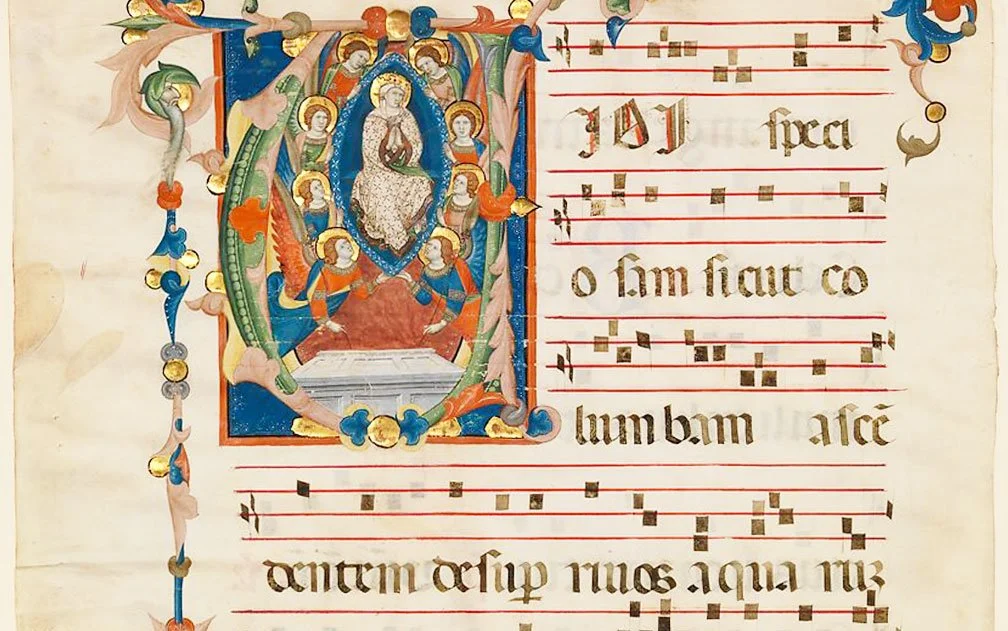 VIDI speci
o ſam ſicut co
lum bam aſcē
dentem deſuꝑ riuos aqua ruz